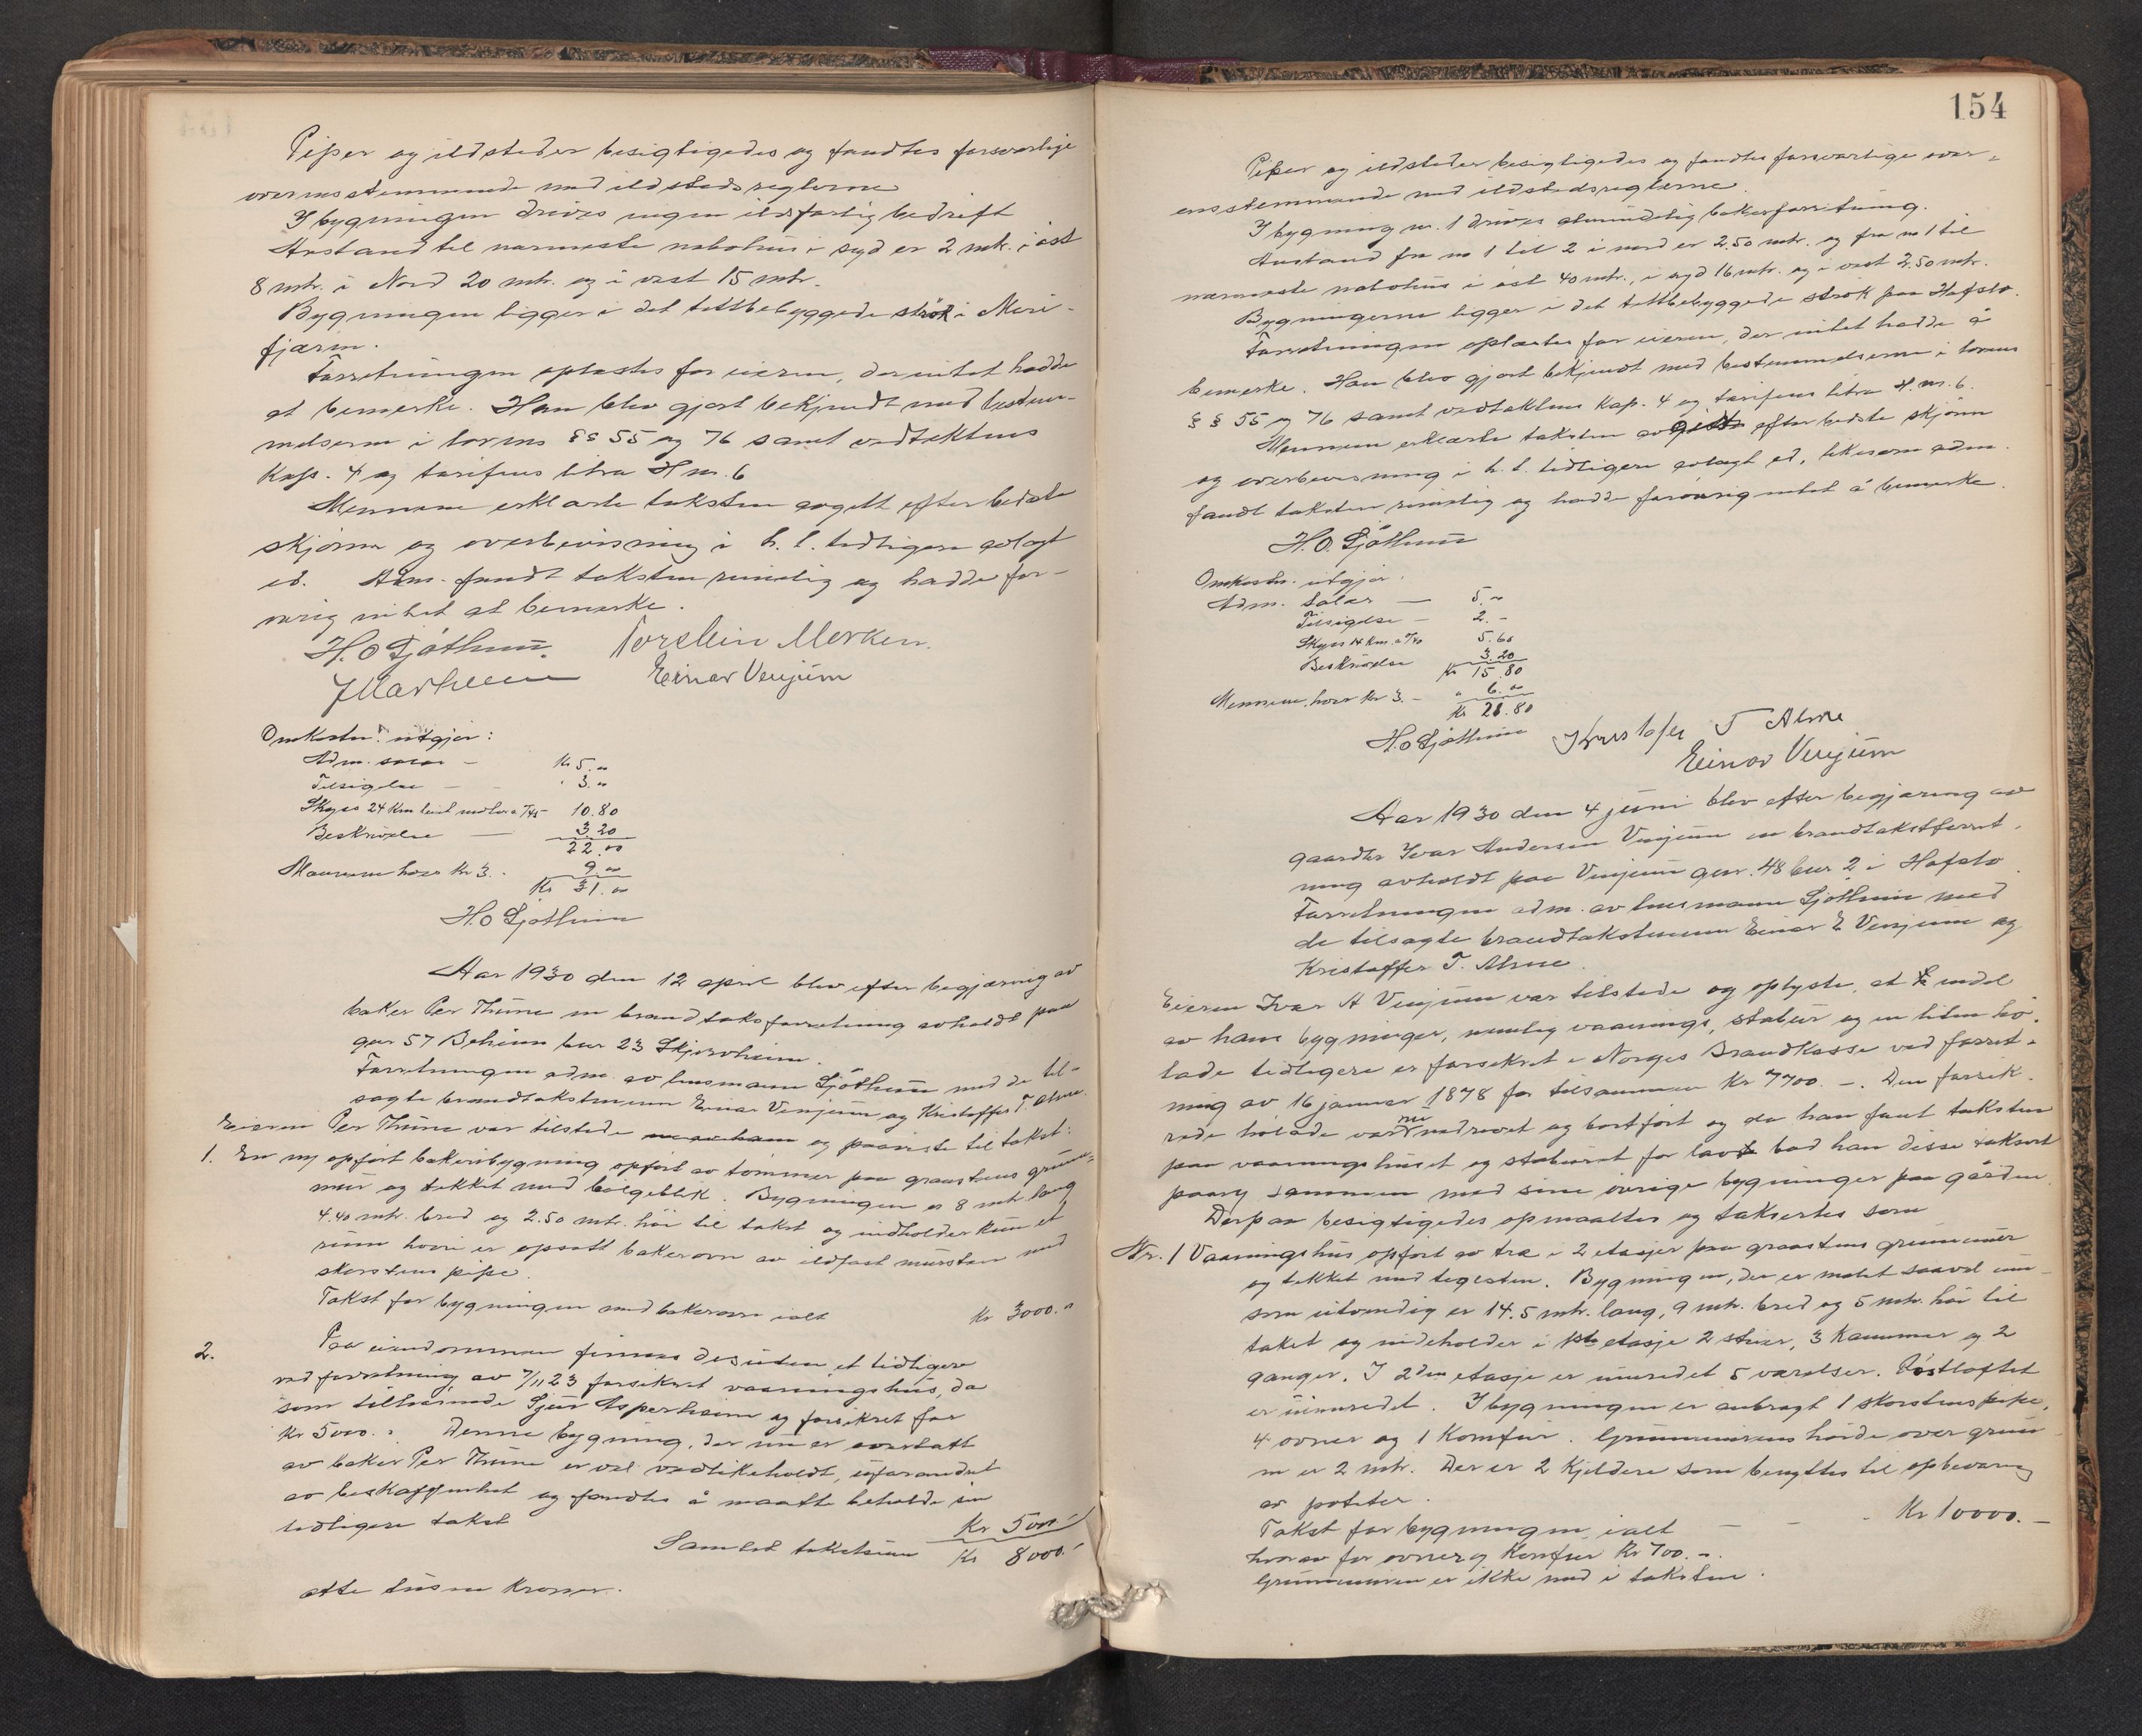 Piper og ildsteder besigtigedes og fandtes forsvarlige
overensstemmende med ildstedsreglerne
I bygningen drives ingen ildsfarlig bedrift
Avstand til nærmeste nabohus i syd er 2 mtr. i øst
8 mtr. i Nord 20 mtr. og i vest 15 mtr.
Bygningen ligger i det tettbebyggede strøk i Mari-
fjæren.
Forretningen oplæstes for eieren, der intet hadde
at bemerke. Han blev gjort bekjendt med bestem-
melserne i lovens §§ 55 og 76 samt vedtektens
Kap. 4 og tarifens litra H nr. 6
Mennene erklærte taksten avgitt efter bedste
skjønn og overbevisning i h. t. tidligere avlagt
ed. Adm. fandt taksten rimelig og hadde for-
øvrig intet at bemerke.
H. O Sjøthun. Torstein Mørken.
Einar Venjum
Omkostn. utgjør:
Adm. salær – Kr 5.„
Tilsigelse – " 3.„
Skyss 24 Km 10.80
Beskrivelse — 3.20
22.00
Mennene hver Kr 3.- 9.„
Kr 31.„
H.O Sjøthun
Aar 1930 den 12 april blev efter begjæring av
baker Per Thune en brandtaksforretning avholdt paa
gnr 57 Beheim bnr 23 Skjersheim.
Forretningen adm. av lensmann Sjøthun med de til-
sagte brandtakstmenn Einar Venjum og Kristoffer T. Alme.
Eieren Per Thune var tilstede og paaviste til takst:
1. En ny opført bakeribygning opført av tømmer paa graastens grunn-
mur og tekket med bølgeblik. Bygningen er 8 mtr. lang
4.40 mtr. bred og 2.50 mtr. høi til takst og indholder kun et
rum hvori er opsatt bakerovn av ildfast mursten med
skorstens pipe.
Takst for bygningen med bakerovn ialt Kr 3000.„
2. Paa eiendommen finnes desuten et tidligere
ved forretning av 7/11 23 forsikret vaaningshus, da
som tilhørende Sjur Asperheim og forsikret for
Kr 5000.- Denne bygning, der nu er overtatt
av baker Per Thune er vel vedlikeholdt, uforandret
av beskaffenhet og fandtes å maatte beholde sin
tidligere takst Kr 5000.-
Samlet takstsum Kr 8000.-
otte tusen kroner.
154
Piper og ildsteder besigtigedes og fandtes forsvarlige over-
ensstemmende med ildstedsreglerne.
I bygning nr. 1 drives almindelig bakerforretning.
Avstand fra nr 1 til 2 i nord er 2.50 mtr. og fra nr 1 til
nærmeste nabohus i øst 40 mtr., i syd 16 mtr. og i vest 2.50 mtr.
Bygningerne ligger i det tettbebyggede strøk paa Hafslo.
Forretningen oplæstes for eieren, der intet hadde å
bemerke. Han blev gjort bekjendt med bestemmelserne i lovens
§ § 55 og 76 samt vedtektens Kap. 4 og tarifens litra H. nr. 6.
Mennene erklærte taksten avgitt efter bedste skjønn
og overbevisning i h. t. tidligere avlagt ed, likesom adm.
fandt taksten rimelig og hadde forøvrig intet å bemerke.
H. O. Sjøthun
Omkostn. utgjør.
Adm. Salær — 5.„
Tilsigelse – 2.-
Skyss 14 km. 5.60
Beskrivelse 3.20
Kr 15.80
Mennene hver Kr 3.- " 6.„
Kr 21.80
H.O Sjøthun Kristofer T Alme
Einar Venjum
Aar 1930 den 4 juni blev efter begjæring av
gaardbr Ivar Andersen Venjum en brandtakstforret-
ning avholdt paa Venjum gnr. 48 bnr 2 i Hafslo.
Forretningen adm. av lensmann Sjøthun med
de tilsagte brandtakstmenn Einar E Venjum og
Kristoffer T. Alme.
Eieren Ivar A Venjum var tilstede og oplyste, at endel
av hans bygninger, nemlig vaanings, stabur og en liten hø-
lade tidligere er forsikret i Norges Brandkasse ved forret-
ning av 16 januar 1878 for tilsammen Kr 7700.-. Den forsik-
rede hølade var nu nedrevet og bortført og da han fant taksten
paa vaaningshuset og staburet for lav bad han disse taksert
paany sammen med sine øvrige bygninger paa gården.
Derpaa besigtigedes opmaaltes og taksertes som
Nr. 1 Vaaningshus opført av træ i 2 etasjer paa graastens grunnmur
og tekket med teglsten. Bygningen, der er malet saavel inn-
som utvendig er 14.5 mtr. lang, 9 mtr. bred og 5 mtr. høi til
taket og indeholder i 1ste etasje 2 stuer, 3 Kammer og 2
ganger. I 2den etasje er innredet 5 værelser. Røstloftet
er uinnredet. I bygningen er anbragt 1 skorstenspipe,
4 ovner og 1 Komfur. Grunnmurens høide over grun-
nen er 2 mtr. Der er 2 Kjeldere som benyttes til opbevaring
av poteter.
Takst for bygningen ialt — - - Kr 10000.—
hvorav for ovner og Komfur Kr 700.-.
Grunnmuren er ikke med i taksten.